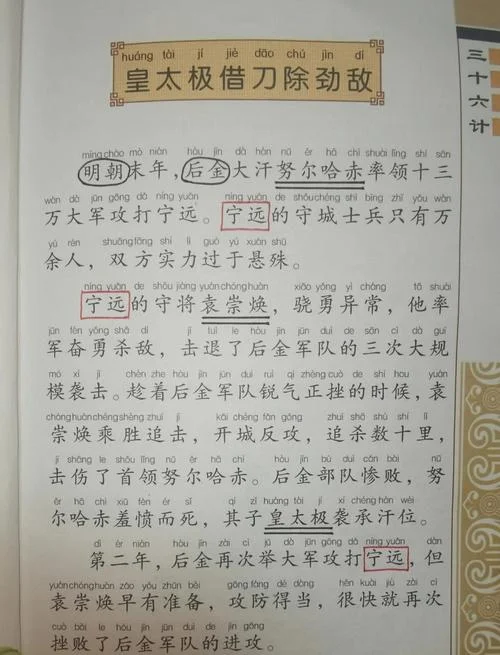 huáng tài jí jiè dāo chú jìn dí
皇太极借刀除劲敌
三十六计
míng cháo mò nián hòu jīn dà hán nǔ ěr hā chì shuài lǐng shí sān
明朝末年，后金大汗努尔哈赤率领十三
wàn dà jūn gōng dǎ níng yuǎn níng yuǎn de shǒu chéng shì bīng zhǐ yǒu wàn
万大军攻打宁远。宁远的守城士兵只有万
yú rén shuāng fāng shí lì guò yú xuán shū
余人，双方实力过于悬殊。
níng yuǎn de shǒu jiàng yuán chóng huàn xiāo yǒng yì cháng tā shuài
宁远的守将袁崇焕，骁勇异常，他率
jūn fèn yǒng shā dí jī tuì le hòu jīn jūn duì de sān cì dà guī
军奋勇杀敌，击退了后金军队的三次大规
mó xí jī chèn zhe hòu jīn jūn duì ruì qì zhèng cuò de shí hou yuán
模袭击。趁着后金军队锐气正挫的时候，袁
chóng huàn chéng shèng zhuī jī kāi chéng fǎn gōng zhuī shā shù shí lǐ
崇焕乘胜追击，开城反攻，追杀数十里，
jī shāng le shǒu lǐng nǔ ěr hā chì hòu jīn bù duì cǎn bài nǔ
击伤了首领努尔哈赤。后金部队惨败，努
ěr hā chì xiū fèn ér sǐ qí zǐ huáng tài jí xí chéng hán wèi
尔哈赤羞愤而死，其子皇太极袭承汗位。
dì èr nián hòu jīn zài cì jǔ dà jūn gōng dǎ níng yuǎn dàn
第二年，后金再次举大军攻打宁远，但
yuán chóng huàn zǎo yǒu zhǔn bèi gōng fáng dé dàng hěn kuài jiù zài cì
袁崇焕早有准备，攻防得当，很快就再次
cuò bài le hòu jīn jūn duì de jìn gōng
挫败了后金军队的进攻。